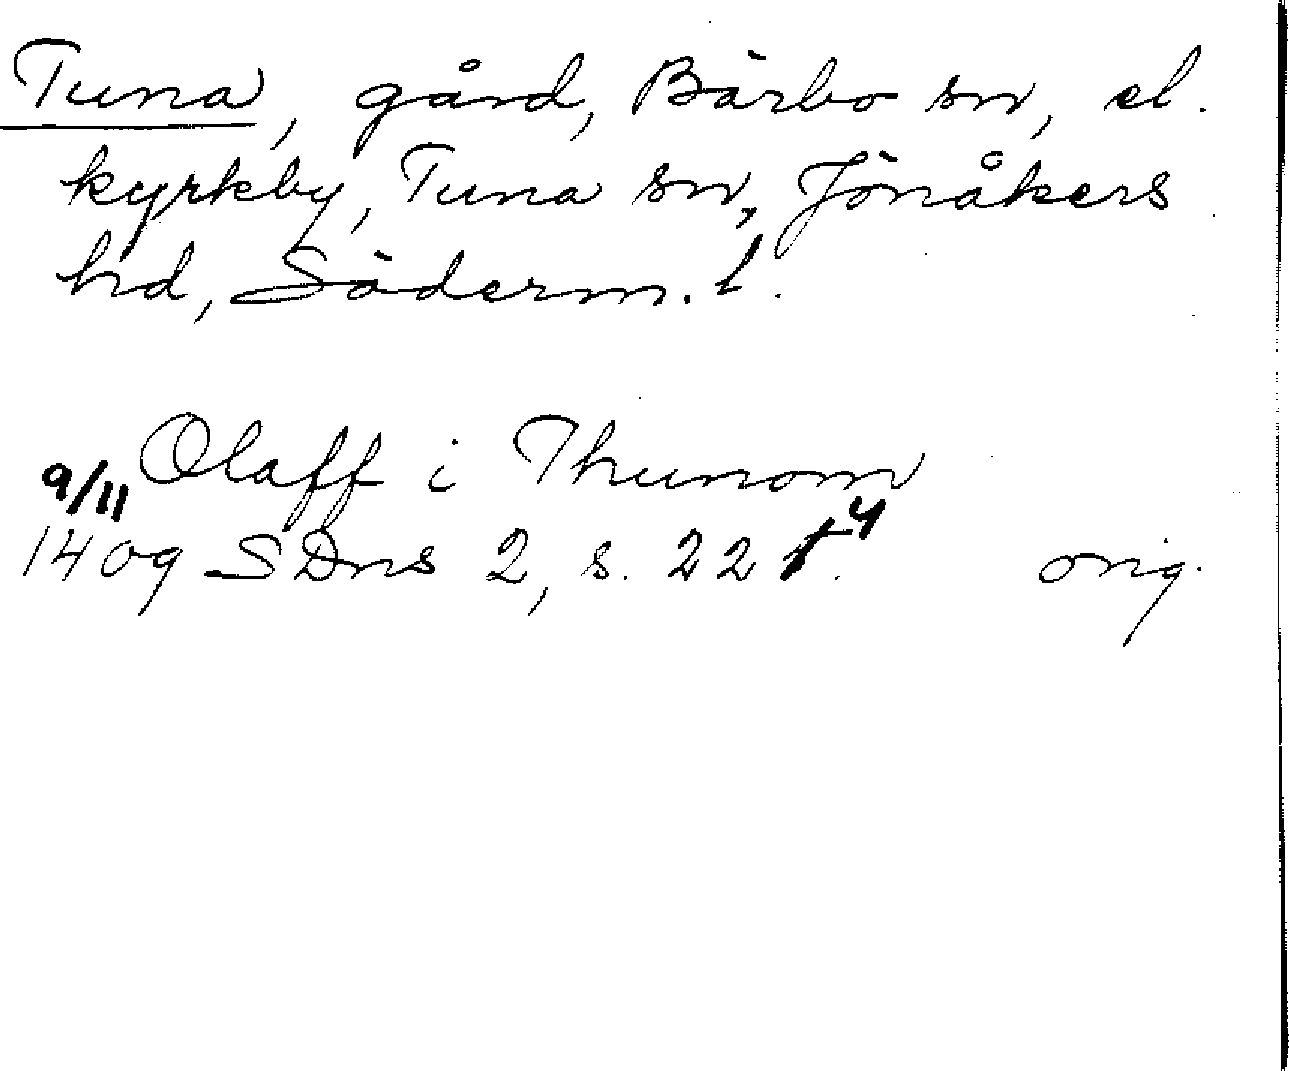 Tuna, gård, Bärbo sn, el.
kyrkby, Tuna sn, Jönåkers
hd, Söderm. l.
Olaff i Thunom
9/11
1409 SDns 2, s. 224. orig.